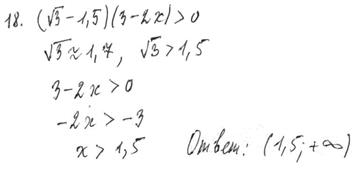 18. (√3 -1,5)(3-2x)>0
√3 ≈ 1,7, √3 > 1,5
3-2x>0
-2x>-3
x > 1,5 Ответ: (1,5; +∞)